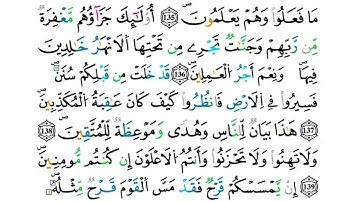 مَا فَعَلُواْ وَهُمْ يَعْلَمُونَ 135 أُوْلَٰٓئِكَ جَزَآؤُهُم مَّغْفِرَةٌ
مِّن رَّبِّهِمْ وَجَنَّٰتٌ تَجْرِے مِن تَحْتِهَا اَ۬لَانْهَٰرُ خَٰلِدِينَ
فِيهَا وَنِعْمَ أَجْرُ اُ۬لْعَٰمِلِينَ 136 قَدْ خَلَتْ مِن قَبْلِكُمْ سُنَنٌ
فَسِيرُواْ فِے اِ۬لَارْضِ فَانظُرُواْ كَيْفَ كَانَ عَٰقِبَةُ اُ۬لْمُكَذِّبِينَ
137 هَٰذَا بَيَانٌ لِّلنَّاسِ وَهُدىٗ وَمَوْعِظَةٌ لِّلْمُتَّقِينَ 138
وَلَا تَهِنُواْ وَلَا تَحْزَنُواْ وَأَنتُمُ اُ۬لَاعْلَوْنَ إِن كُنتُم مُّومِنِينَ 139
إِنْ يَّمْسَسْكُمْ قَرْحٌ فَقَدْ مَسَّ اَ۬لْقَوْمَ قَرْحٌ مِّثْلُهُۥ